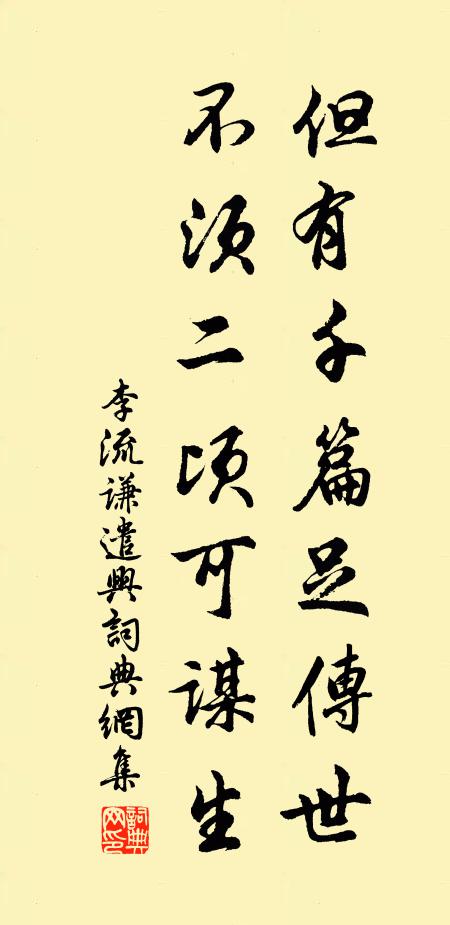 但有千篇足傳世
不須二頃可謀生
李流謙遣興詞典網集
詞典网印